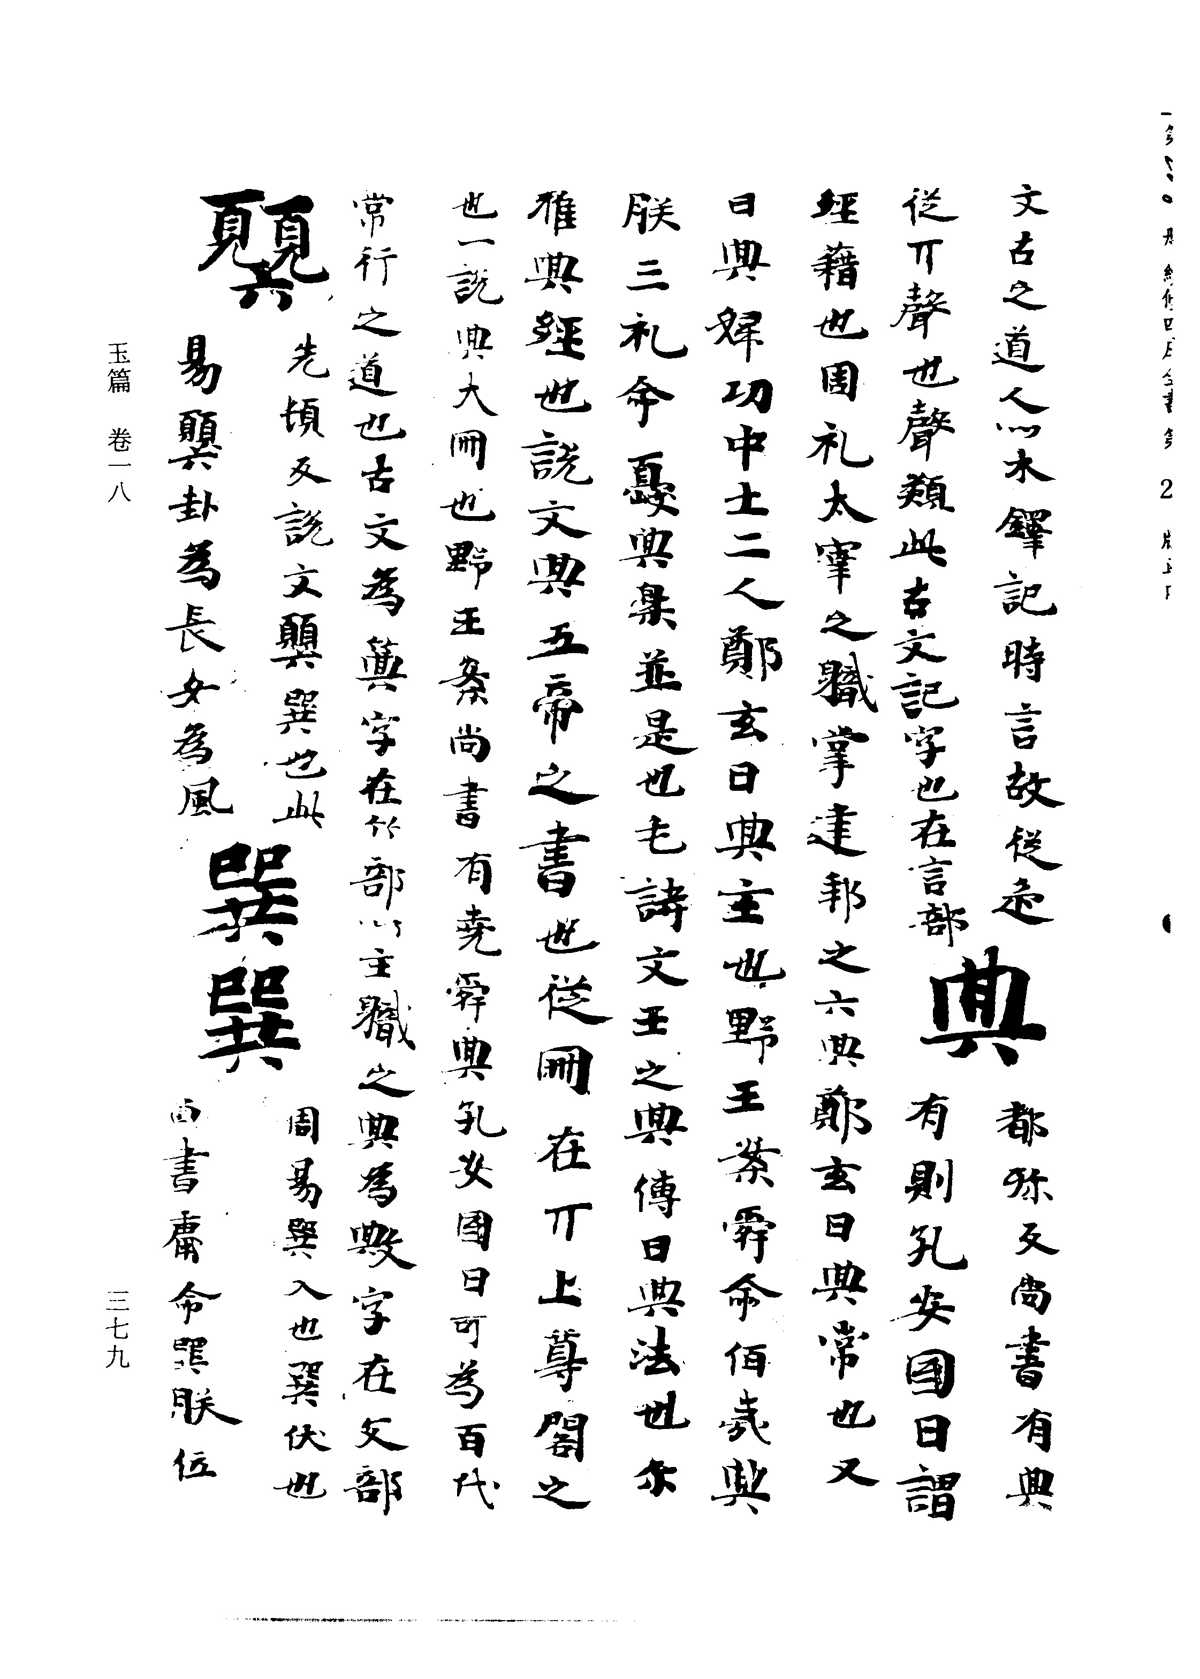 文古之道人以木鐸記時言故從辵
從丌聲也聲類此古文記字也在言部
典
都殄反尚書有典
有則孔安國曰謂
經藉也周礼太宰之軄掌建邦之六典鄭玄曰典常也又
曰典婦功中士二人鄭玄曰典主也野王案舜命佰夷典
朕三礼命夔典樂並是也毛詩文王之典傳曰典法也尒
雅典經也說文典五帝之書也從冊在丌上尊閣之
也一說典大冊也野王案尚書有堯舜典孔安國曰可為百代
常行之道也古文為籅字在竹部以主軄之典為敟字在攴部
顨
先頓反說文顨巽也此
易顨卦為長女為風
巽巺
周易巽入也巽伏也
尚書庸命巽朕位
玉篇 卷一八
三七九